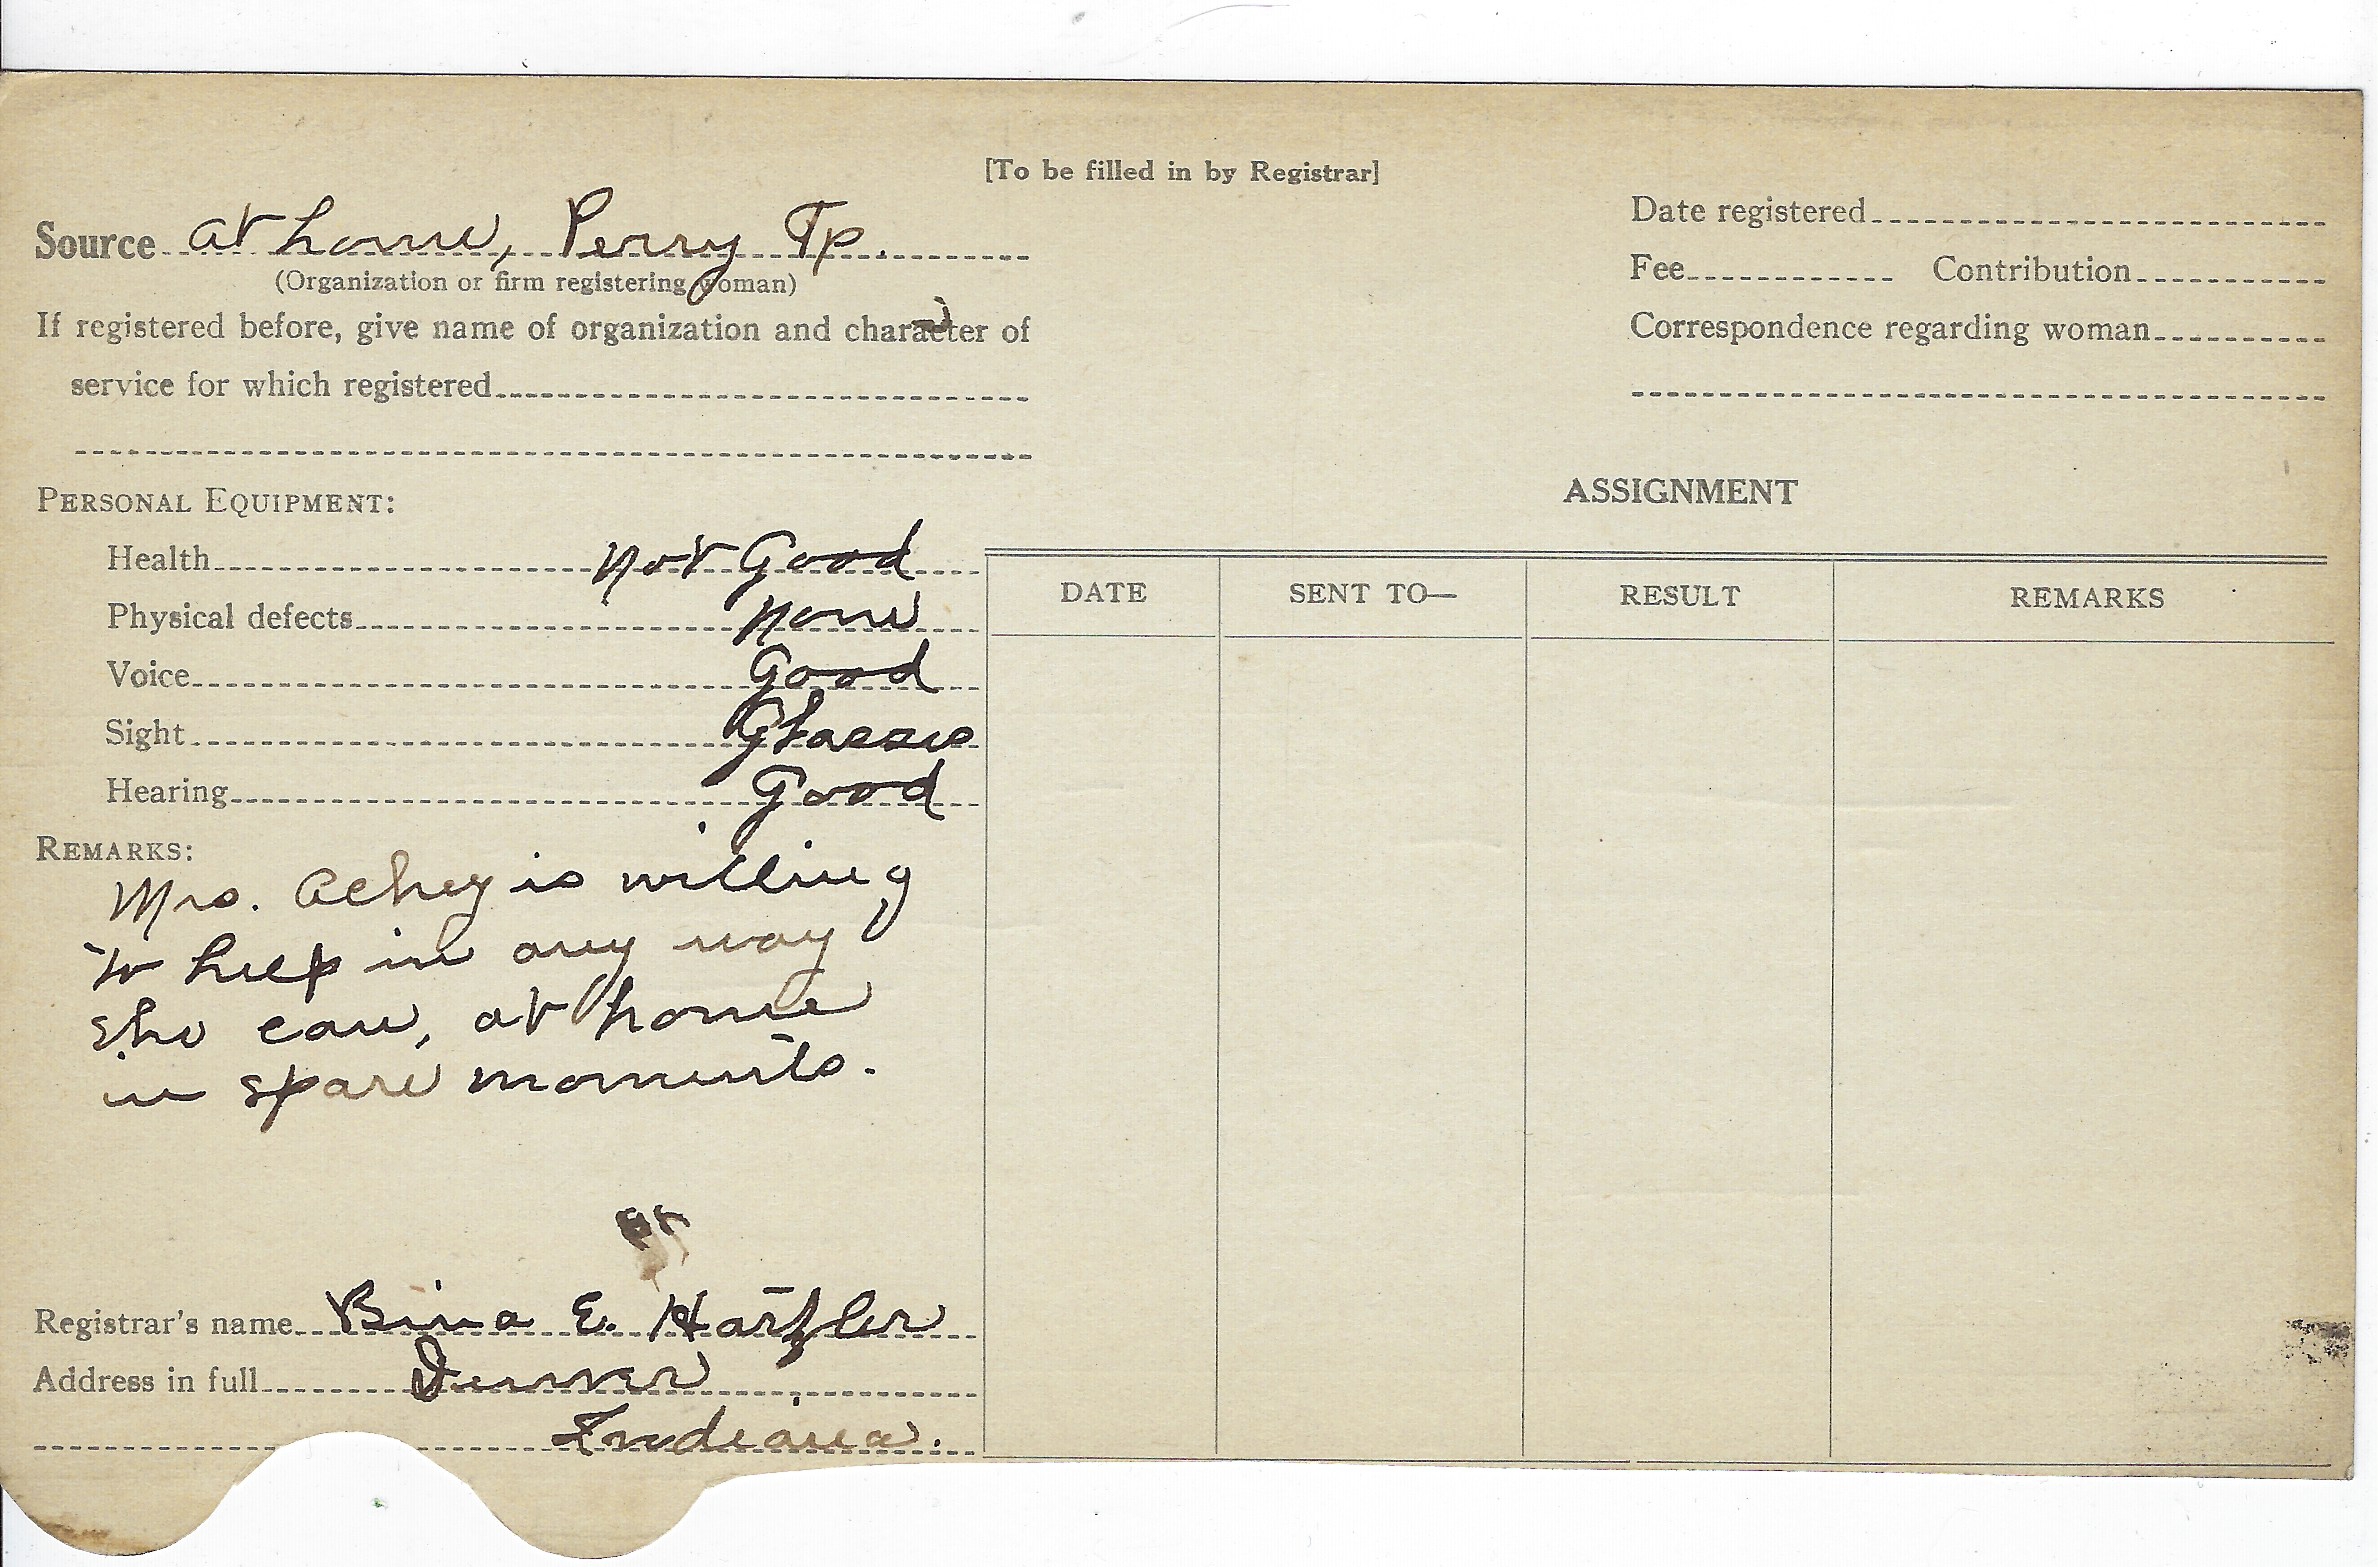 [To be filled in by Registrar]
Source at home, Perry Tp.
(Organization or firm registering woman)
If registered before, give name of organization and character of
service for which registered
Date registered
Fee Contribution
Correspondence regarding woman
PERSONAL EQUIPMENT:
Health not Good
Physical defects none
Voice Good
Sight Glasses
Hearing Good
REMARKS:
Mrs. Achey is willing
to help in any way
she can, at home
in spare moments.
Registrar's name Bina E. Hartzler
Address in full Denver
Indiana.
ASSIGNMENT
DATE SENT TO— RESULT REMARKS